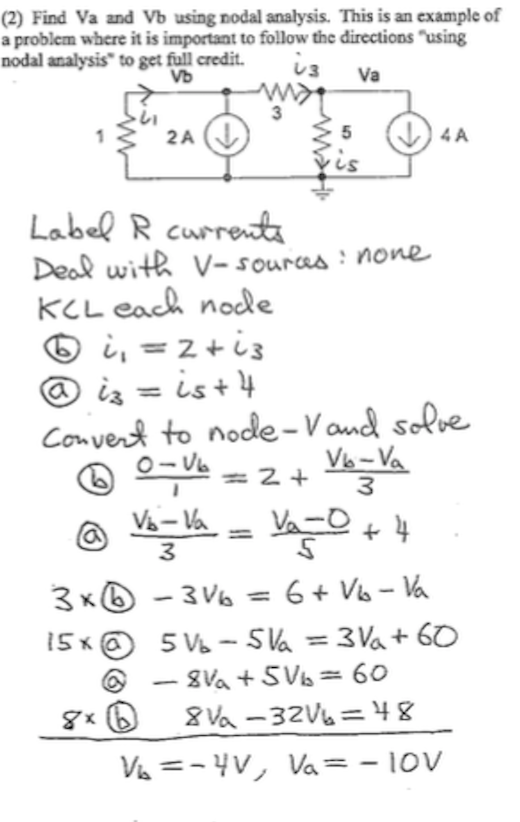 (2) Find Va and Vb using nodal analysis. This is an example of
a problem where it is important to follow the directions "using
nodal analysis" to get full credit.
Vb i3 Va
3
1 i1 2 A 5 4 A
i5
Label R currents
Deal with V-sources : none
KCL each node
ⓑ i1 = 2 + i3
ⓐ i3 = i5 + 4
Convert to node-V and solve
ⓑ (0-Vb)/1 = 2 + (Vb-Va)/3
ⓐ (Vb-Va)/3 = (Va-0)/5 + 4
3×ⓑ -3Vb = 6 + Vb - Va
15×ⓐ 5Vb - 5Va = 3Va + 60
ⓐ -8Va + 5Vb = 60
8×ⓑ 8Va - 32Vb = 48
Vb = -4V, Va = -10V